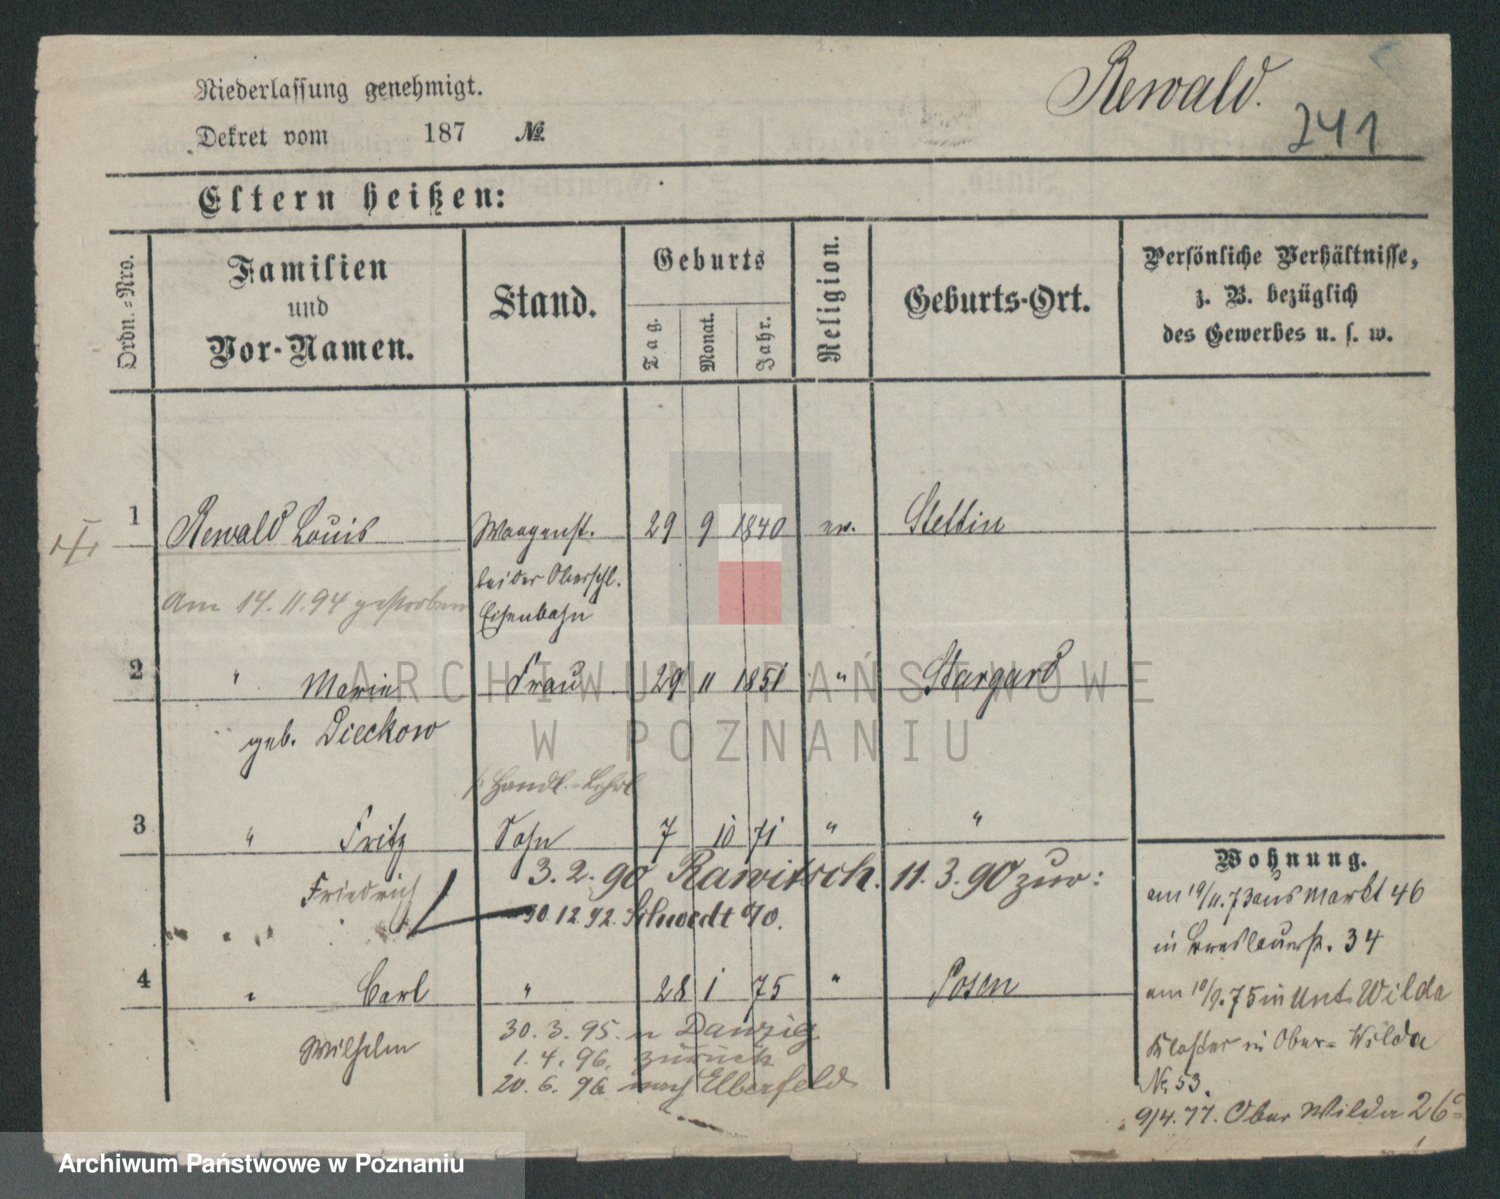 Niederlassung genehmigt.
Dekret vom 187 №
Rewald.
241
Eltern heißen:
Ordn.-Nro.
Familien
und
Vor-Namen.
Stand.
Geburts
Tag.
Monat.
Jahr.
Religion.
Geburts-Ort.
Persönliche Verhältnisse,
z. B. bezüglich
des Gewerbes u. s. w.
1 Rewald Louis Waagenst. 29 9 1840 ev. Stettin
bei der Oberschl.
Am 14.11.94 gestorben Eisenbahn
2 " Marie Frau 29 11 1851 " Stargard
geb. Dieckow
Handl.-Lehrl
3 " Fritz Sohn 7 10 71 " "
Friedrich 3.2.90 Rawitsch. 11.3.90 zur:
30.12.92. Schwedt 90.
4 " Carl " 28 1 75 " Posen
Wilhelm 30.3.95. n Danzig
1.4.96. zurück
20.6.96 nach Elberfeld
Wohnung.
am 19/11.73 aus Markt 46
in Breslauerst. 34
am 10/9.75 in Unt. Wilda
Kloster in Ober-Wilda
№ 53.
9/4.77. Ober Wilda 26c
ARCHIWUM PAŃSTWOWE
W POZNANIU
Archiwum Państwowe w Poznaniu